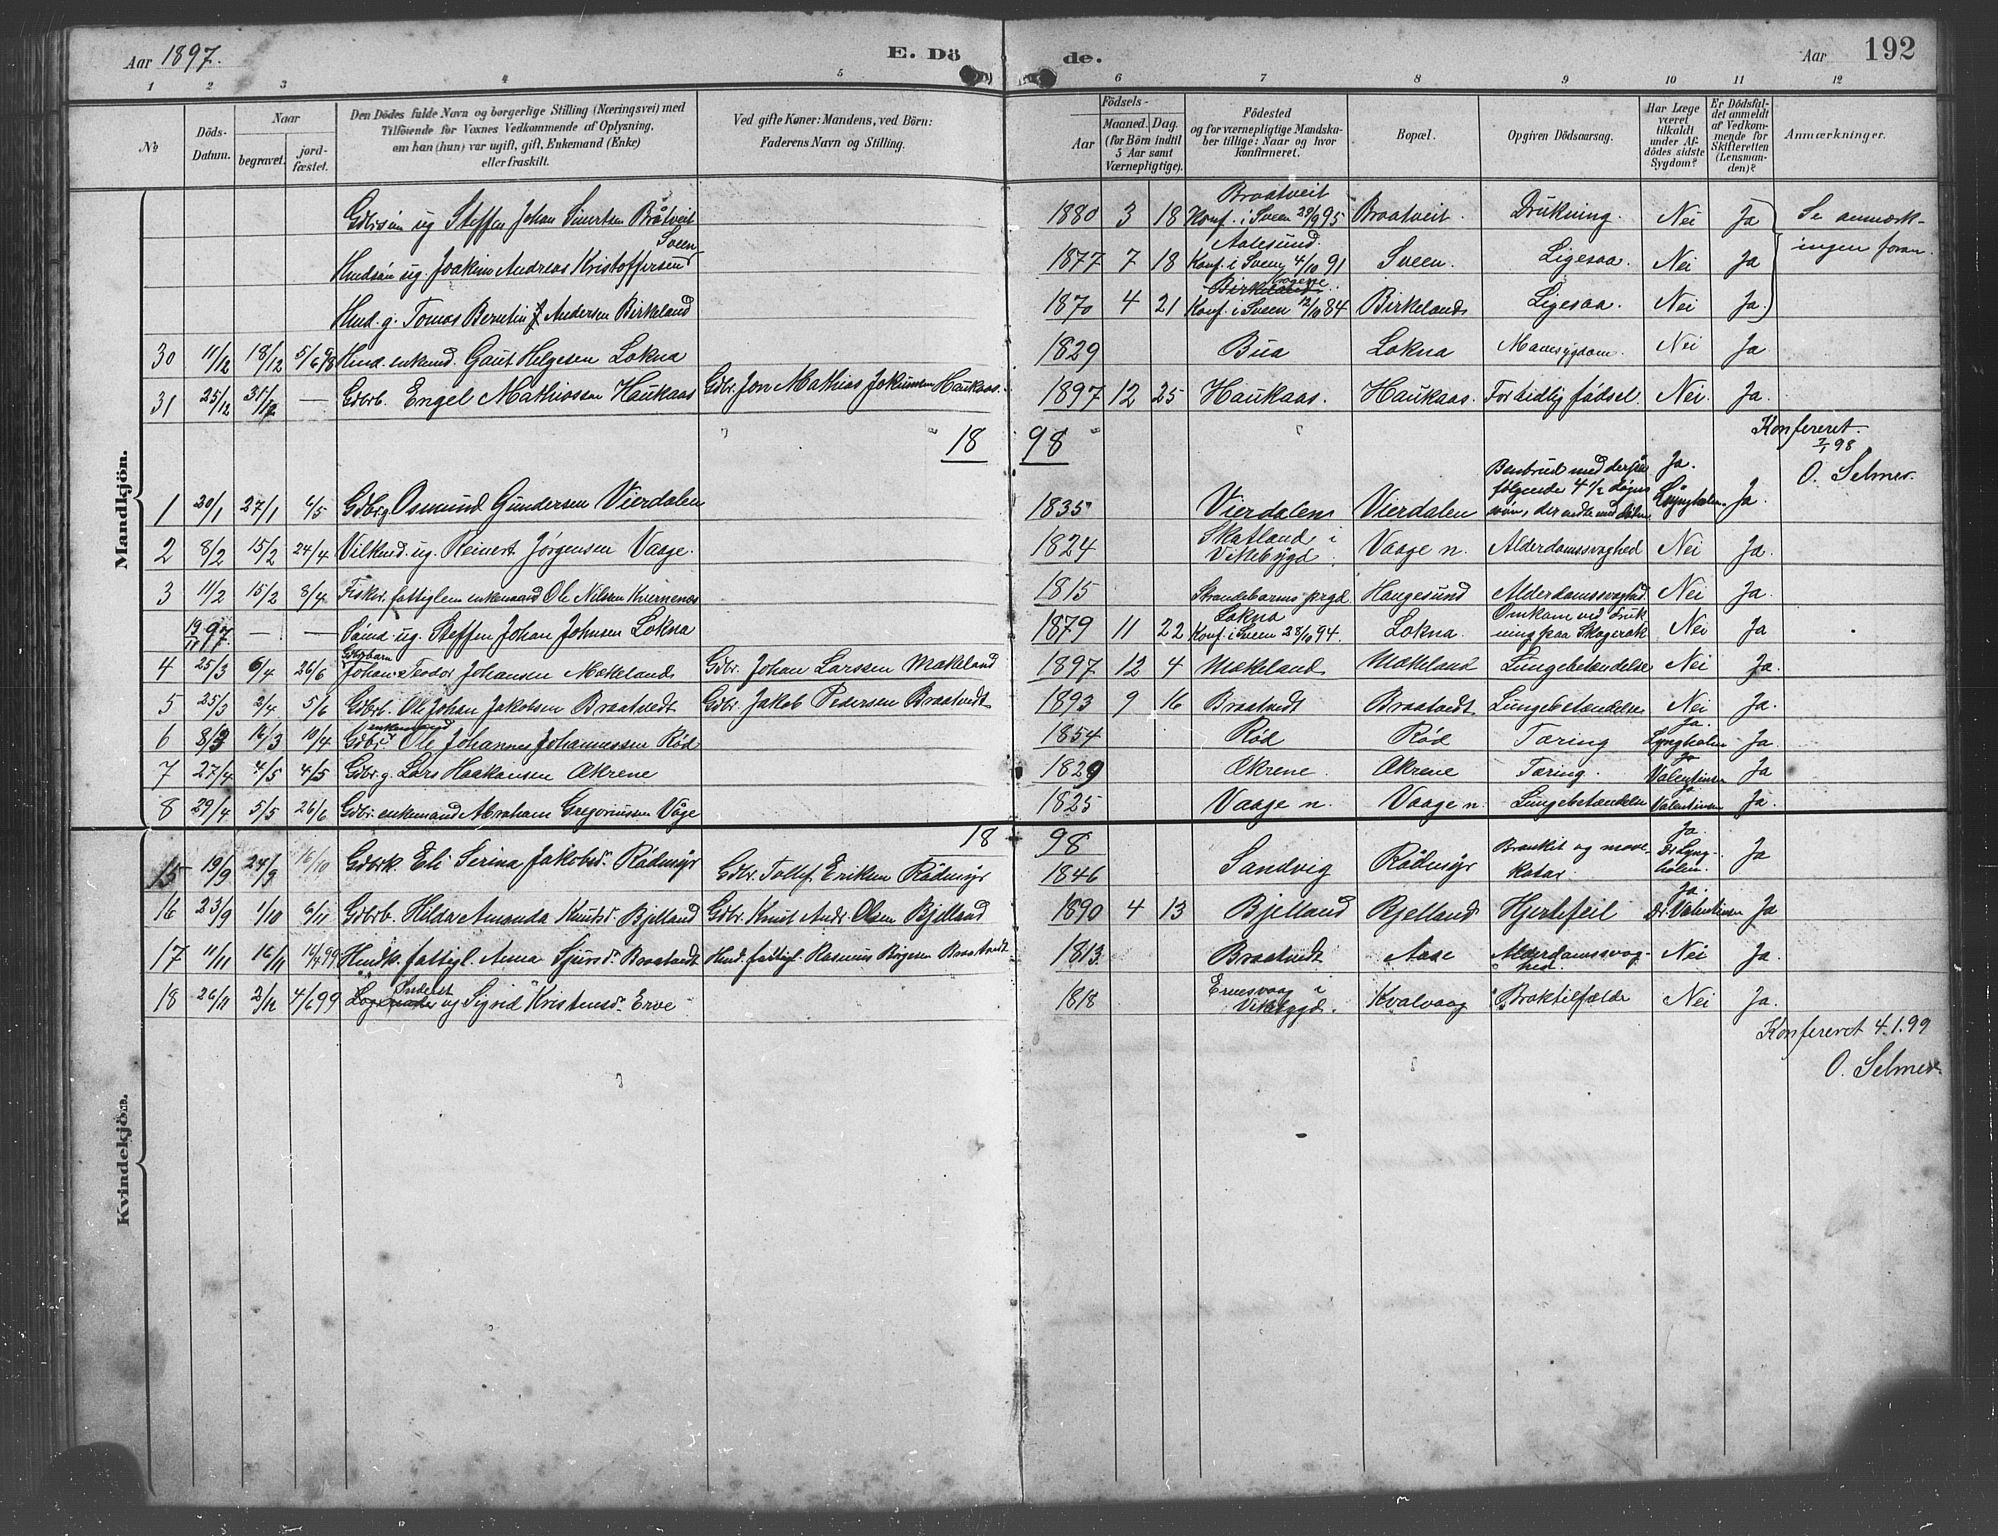 Aar 1897.
E. Dö
de.
Aar
192
1 2 3 4 5 6 7 8 9 10 11 12
No
Döds-
Datum.
Naar
begravet.
jord-
fæstet.
Den Dödes fulde Navn og borgerlige Stilling (Næringsvei) med
Tilföiende for Voxnes Vedkommende af Oplysning,
om han (hun) var ugift, gift, Enkemand (Enke)
eller fraskilt.
Ved gifte Koner: Mandens, ved Börn:
Faderens Navn og Stilling.
Födsels-
Aar
Maaned. Dag.
(for Börn indtil
5 Aar samt
Værnepligtige).
Födested
og for værnepligtige Mandska-
ber tillige: Naar og hvor
konfirmeret.
Bopæl.
Opgiven Dödsaarsag.
Har Læge
været
tilkaldt
under Af-
dödes sidste
Sygdom?
Er Dödsfal-
det anmeldt
af Vedkom-
mende for
Skifteretten
(Lensman-
den)?
Anmærkninger.
Mandkjön.
Gdbrsøn ug Steffen Johan Sivertsen Bråtveit 1880 3 18 Braatveit Konf. i Sveen 29/9 95 Braatveit. Drukning. Nei Ja Se anmærk-
ingen foran.
Hmdsøn ug. Joakim Andreas Kristoffersen Sveen 1877 7 18 Aalesund. Konf. i Sveen 4/10 91 Sveen. Ligesaa. Nei Ja
Hmd. g. Tomas Berntin Andersen Birkeland 1870 4 21 Birkeland Konf. i Sveen 12/10 84 Birkeland Ligesaa. Nei Ja.
30 11/12 18/12 5/6 98 Hmd. enkemd. Gaut Helgesen Lokna 1829 Bua Lokna Mavesygdom. Nei Ja.
31 25/12 31/12 — Gdbrb. Engel Mathiassen Haukaas Gdbr. Jon Mathias Jokumsen Haukaas. 1897 12 25 Haukaas. Haukaas. For tidlig fødsel. Nei Ja.
18 98
Konfereret.
7/1 98
O. Selmer.
1 20/1 27/1 6/5 Gdbr g Osmund Gundersen Vierdalen 1835 Vierdalen Vierdalen Benbrud med derpaa
følgende 4 1/2 døgns
Ja. Lyngholm Ja.
2 8/2 15/2 24/4 Vilkmd. ug. Reinert Jørgensen Vaage. 1824 Skatland i
Vikebygd Vaage n. Alderdomssvaghed Nei Ja.
3 11/2 15/2 8/4 Fisker, fattiglem enkemand Ole Nilsen Kvernenes 1815 Strandebarms prgd Haugesund Alderdomssvaghed Nei Ja.
19/11 97. — — Sømd ug. Steffen Johan Johnsen Lokna 1879 11 22 Lokna
Konf. i Sveen 28/10 94. Lokna. Omkom ved Druk-
ning paa Skagerak Nei Ja
4 25/3 6/4 26/6 Gdbrbarn
Johan Teodor Johansen Mækeland Gdbr. Johan Larssen Mækeland 1897 12 4 Mækeland Mækeland Lungebetændelse Nei Ja.
5 25/3 2/4 5/6 Gdbrb. Ole Johan Jakobsen Braatvedt Gdbr. Jakob Pedersen Braatvedt 1893 9 16 Braatvedt Braatvedt Lungebetændelse Nei Ja.
6 8/3 16/3 10/4 Gdbr enkemand Ole Johannes Johannessen Rød 1854 Rød Rød Tæring Ja Lyngholm Ja
7 27/4 4/5 4/5 Gdbr. g. Lars Haakonsen Økrene 1829 Økrene. Økrene Tæring. Ja Valentinsen Ja
8 29/4 5/5 26/6 Gdbr. enkemand Abraham Gregoriussen Våge 1825 Vaage n. Vaage n. Lungebetændelse Ja Valentinsen Ja.
Kvindekjön.
18 98
15 19/9 24/9 16/10 Gdbrk. Eli Serina Jakobsd. Rødmyr Gdbr. Tollef Eriksen Rødmyr 1846 Sandvig Rødmyr Bronkit og mave-
katar. Ja.
Dr. Lyng-
holm. Ja
16 23/9 1/10 6/11 Gdbrb. Hilda Amanda Knutsd. Bjelland Gdbr. Knut Andr. Olsen Bjelland 1890 4 13 Bjelland Bjelland Hjertefeil Ja.
Dr. Valentinsen Ja
17 11/11 16/11 10/4 99 Hmdk. fattigl. Anna Sjursd. Braatvedt Hmd. fattigl. Rasmus Børgesen Braatvedt 1813. Braatvedt Aase Alderdomssvag-
hed. Nei Ja.
18 26/11 2/12 4/6 99 Inderst ug Sigrid Kristensd. Erve 1818 Ervesvaag i
Vikebygd. Kvalvaag Broktilfælde Nei Ja.
Konfereret 4.1.99
O. Selmer